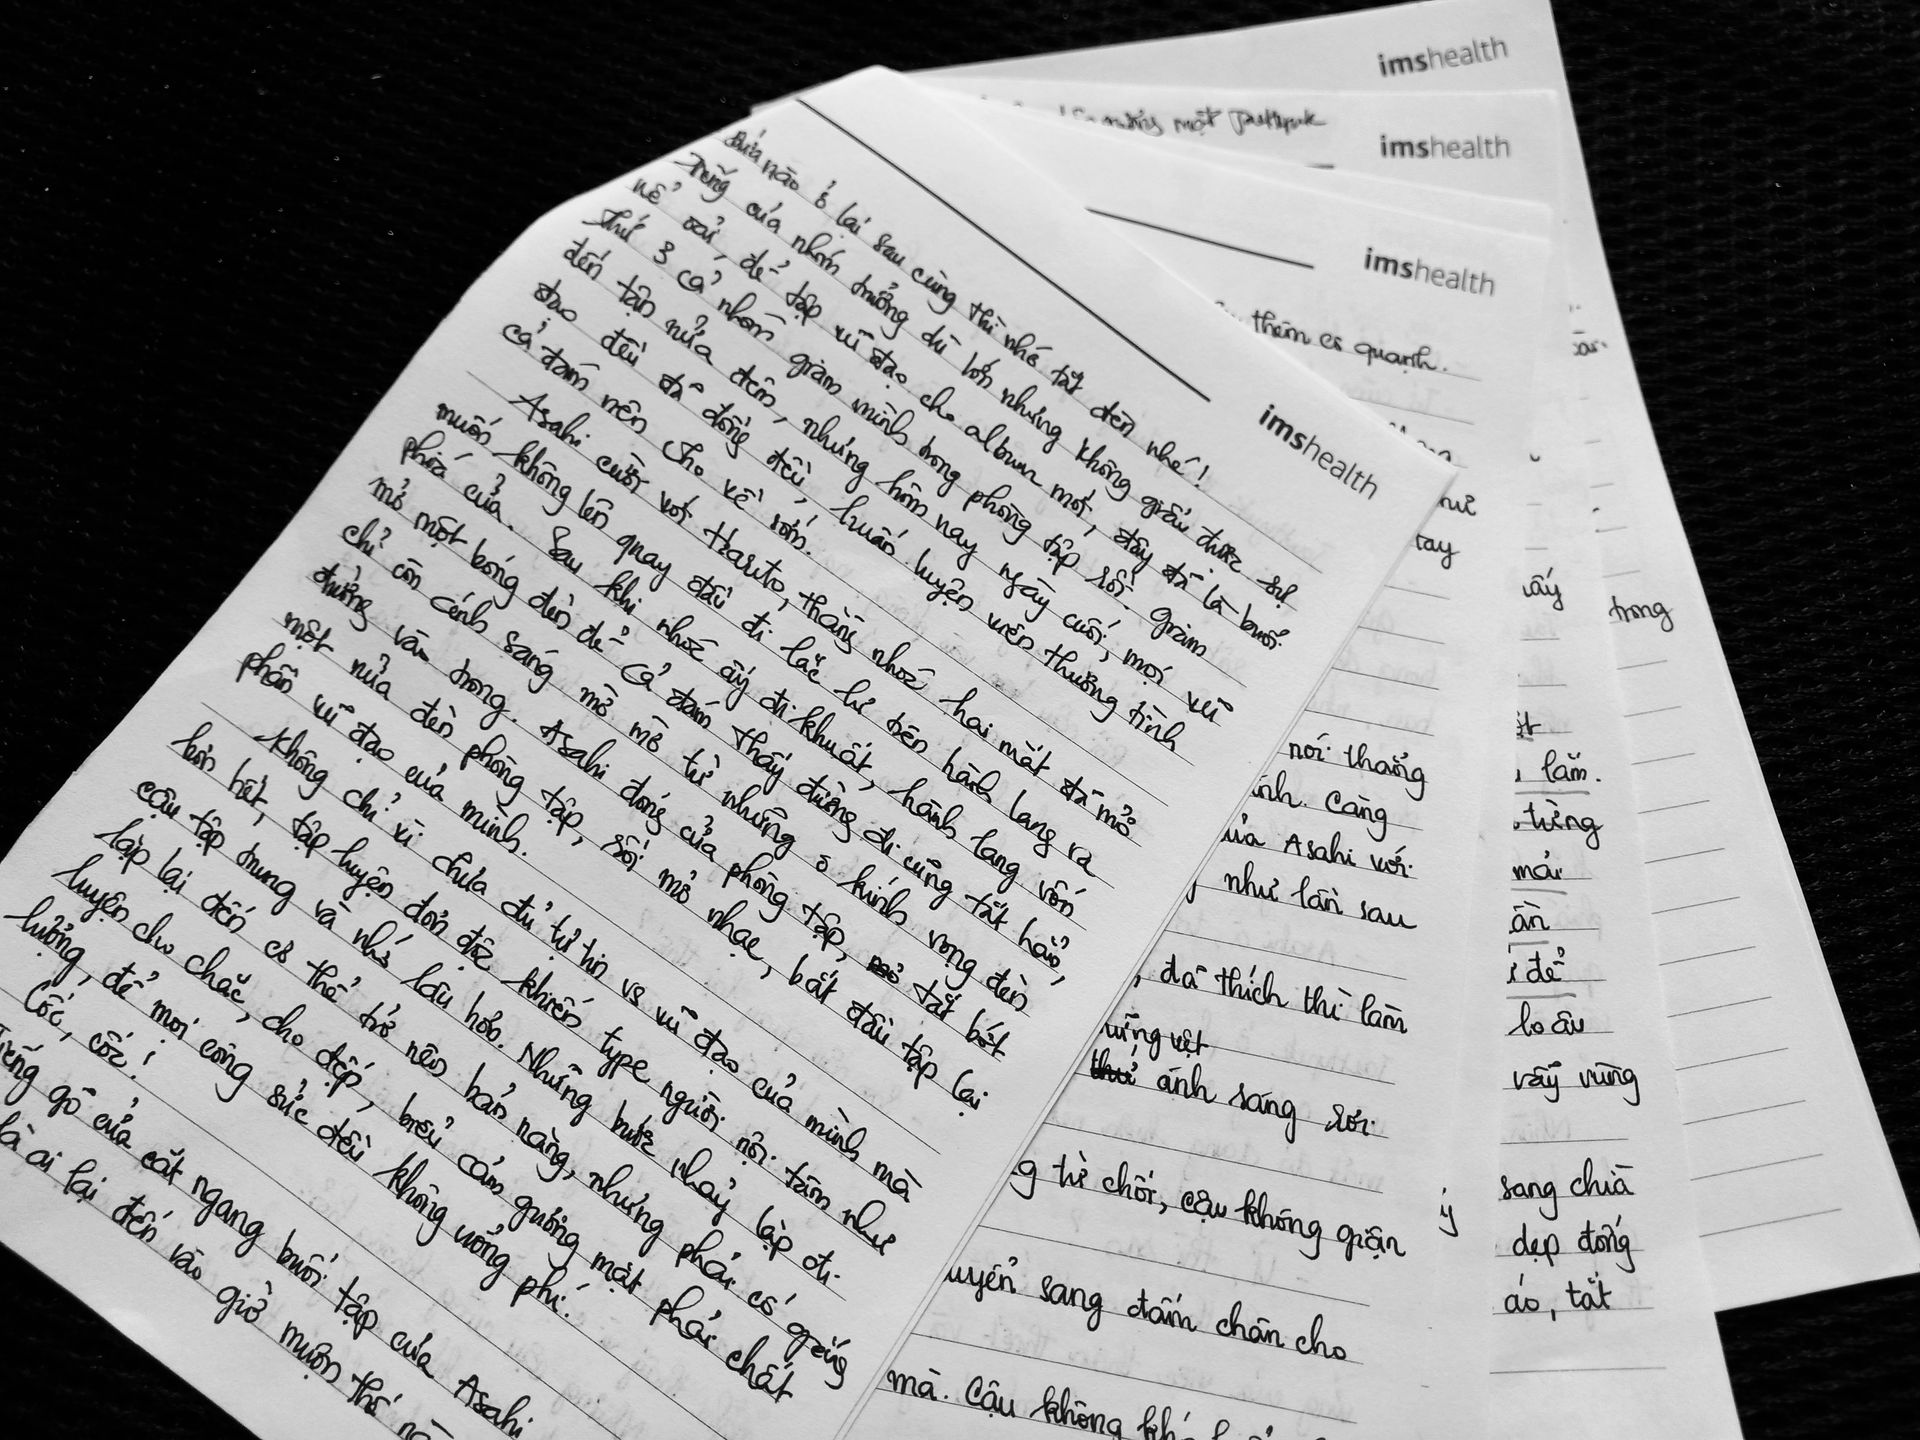 Đứa nào ở lại sau cùng thì nhớ tắt đèn nhé!
Tiếng của nhóm trưởng dù lớn nhưng không giấu được sự
nể oải, để tập vũ đạo cho album mới, đây đã là buổi
thứ 3 cả nhóm giam mình trong phòng tập rồi. Giam
đến tận nửa đêm, nhưng hôm nay ngày cuối, mọi vũ
đạo đều đã đồng đều, huấn luyện viên thương tình
cả đám nên cho về sớm.
Asahi cười với Haruto, thằng nhóc hai mắt đã mở
muốn không lên quay đầu đi lắc lư trên hành lang ra
phía cửa. Sau khi nhóc ấy đi khuất, hành lang vốn
mở một bóng đèn để cả đám thấy đường đi cũng tắt hẳn,
chỉ còn ánh sáng mờ mờ từ những ô kính vọng đèn
đường vào trong. Asahi đóng cửa phòng tập, tắt bớt
một nửa đèn phòng tập, rồi mở nhạc, bắt đầu tập lại
phần vũ đạo của mình.
Không chỉ vì chưa đủ tự tin vs vũ đạo của mình mà
hơn hết, tập luyện đơn độc khiến type người nội tâm như
cậu tập trung và nhớ lâu hơn. Những bước nhảy lặp đi
lặp lại đến có thể trở nên bản năng, nhưng phải cố gắng
luyện cho chắc, cho đẹp, biểu cảm gương mặt phải chất
lượng, để mọi công sức đều không uổng phí.
Cốc, cốc!
Tiếng gõ cửa cắt ngang buổi tập của Asahi
là ai lại đến vào giờ muộn thế
imshealth
một
imshealth
imshealth
thêm cs quanh.
imshealth
tay
nói thẳng
Càng
của Asahi với
như lần sau
, đã thích thì làm
vụt
ánh sáng rơi
từ chối, cậu không giận
sang đấm chân cho
mà. Cậu không
vấy
trong
lắm.
từng
mải
ân
để
lo âu
vẫy vùng
sang chià
dẹp đống
áo, tắt